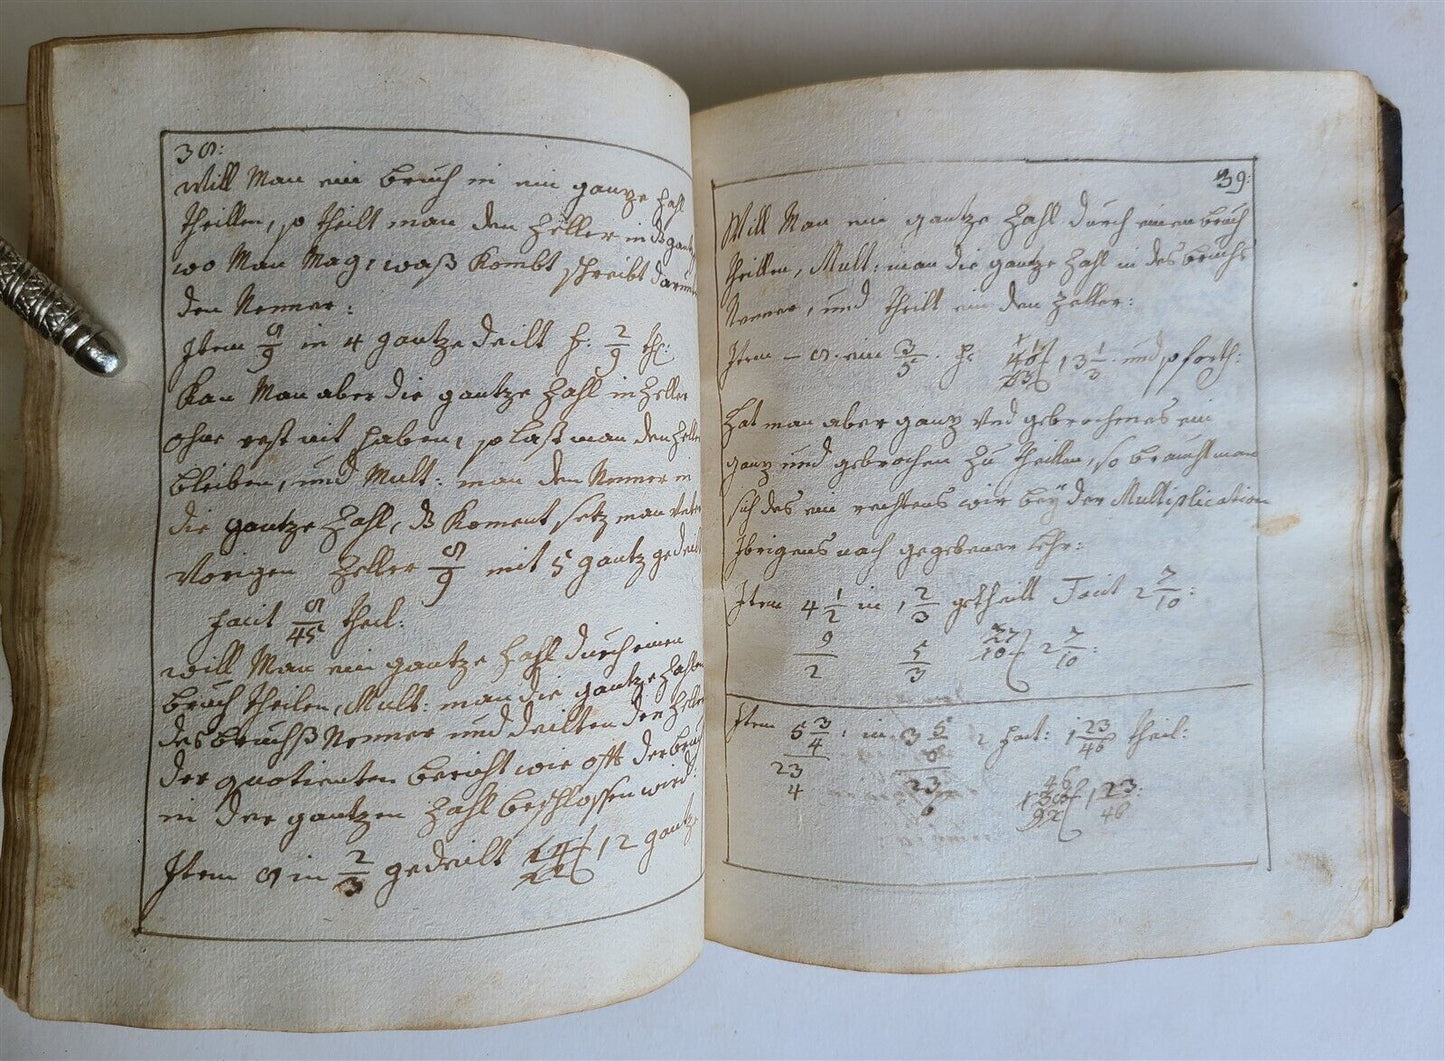 38:
Will Man ein bruch in ein gantze Zahl
theillen, so theilt man den Zeller in ds gantz
wo Man Mag, waß kombt schreibt darunter
den Nenner:
Item 8/9 in 4 gantze deilt f: 2/9 th:
Kan Man aber die gantze Zahl in Zeller
ohne rest nit haben, so laßt man den Zeller
bleiben, und Mult: man den Nenner in
die gantze Zahl, ds koment setz man unter
Vorigen Zeller 8/9 mit 5 gantz gedeilt
facit 8/45 theil:
will Man ein gantze Zahl durch einen
bruch theilen, Mult: man die gantze Zahl
des bruchß Nenner und deilt den Zeller
der quotienten bericht wie offt der bruch
in der gantzen Zahl beschlossen wird:
Item 8 in 2/3 gedeilt 24 12 gantze
39:
Will Man ein gantze Zahl durch einen bruch
theillen, Mult: man die gantze Zahl in des bruchs
Nenner, und theilt ein den Zeller:
Item – 8 · ein 3/5 · f: 40 13 1/3 · und so forth:
Hat man aber gantz und gebrochenes ein
gantz und gebrochen zu theillen, so braucht man
sich des ein rechtens wie bey der Multiplication
Ibrigens nach gegebener Lehr:
Item 4 1/2 in 1 2/3 getheilt Facit 2 7/10:
9/2 5/3 27/10 2 7/10:
Item 5 3/4: in 3 5/6 fact: 1 23/46 theil:
23/4 23/6 1 23/46